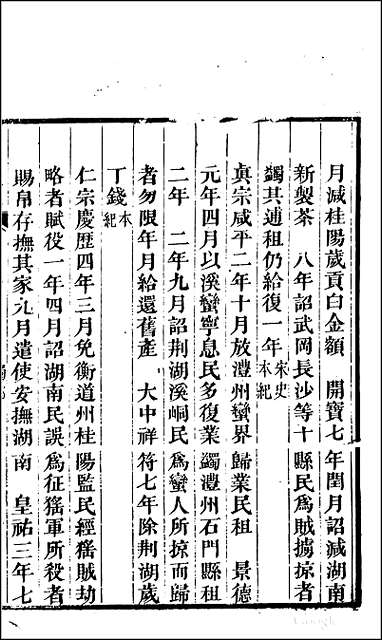 月減桂陽歲貢白金額　開寶七年閏月詔減湖南
新製茶　八年詔武岡長沙等十縣民爲賊擄掠者
蠲其逋租仍給復一年宋史本紀
眞宗咸平二年十月放澧州蠻界歸業民租　景德
元年四月以溪蠻寧息民多復業蠲澧州石門縣租
二年　二年九月詔荆湖溪峒民爲蠻人所掠而歸
者勿限年月給還舊產　大中祥符七年除荆湖歲
丁錢本紀
仁宗慶歷四年三月免衡道州桂陽監民經猺賊劫
略者賦役一年四月詔湖南民誤爲征猺軍所殺者
賜帛存撫其家九月遣使安撫湖南　皇祐三年七